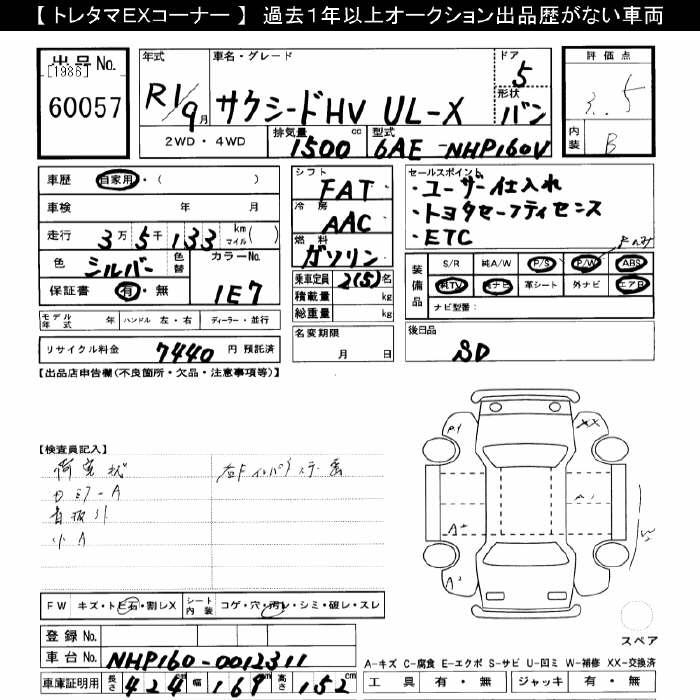 【 トレタマEXコーナー 】 過去1年以上オークション出品歴がない車両
出品No.
[1986]
60057
年式
R1/9月
車名・グレード
サクシードHV UL-X
ドア
5
形状
バン
評価点
3.5
内装
B
2WD・4WD
排気量
1500 cc
型式
6AE-NHP160V
車歴
自家用・( )
車検 年 月
走行 3万5千133 km マイル( )
色
シルバー
色替
カラーNo.
1E7
保証書 有・無
モデル年式 年
ハンドル 左・右
ディーラー・並行
リサイクル料金 7440 円 預託済
シフト
FAT
冷房
AAC
燃料
ガソリン
乗車定員 2(5)名
積載量 kg
総重量 kg
名変期限
月 日
セールスポイント
・ユーザー仕入れ
・トヨタセーフティセンス
・ETC
装備品
S/R 純A/W P/S P/W ABS
純TV 純ナビ 革シート 外ナビ エアB
ナビ型番:
後日品
SD
【出品店申告欄(不良箇所・欠品・注意事項等)】
【検査員記入】
A1
XX
A2
小A
FW キズ・トビ石・割レX
シート内装 コゲ・穴・汚レ・シミ・破レ・スレ
登録No.
車台No. NHP160-0012311
車庫証明用 長さ 424 幅 169 高さ 152 cm
スペア
A-キズ C-腐食 E-エクボ S-サビ U-凹ミ W-補修 XX-交換済
工具 有・無 ジャッキ 有・無